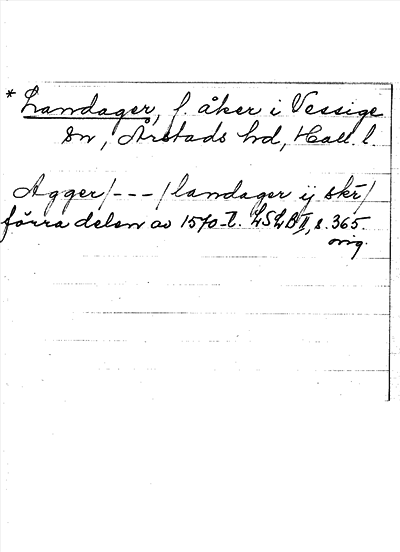 * Landager, f. åker i Vessige
sn, Årstads hd, Hall. l.
Agger/---/landager ij skr/
förra delen av 1570-t. LSLB II, s. 365.
orig.